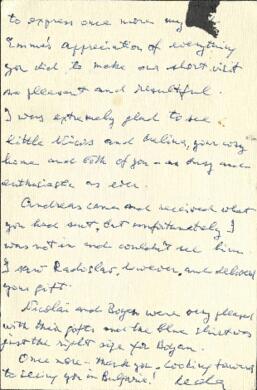 to express once more my
Emma's appreciation of everything
you did to make our short visit
so pleasant and resultful.
I was extremely glad to see
little and your cosy
home and both of you – as busy and
enthusiastic as ever.
Andreas came and received what
you had sent, but unfortunately I
was not in and couldn't see him.
I saw Radoslav, however, and delivered
your gift.
Nicolai and Boyan were very pleased
with their gifts and the blue shirt was
just the right size for Boyan.
Once more – thank you. Looking forward
to seeing you in Bulgaria!